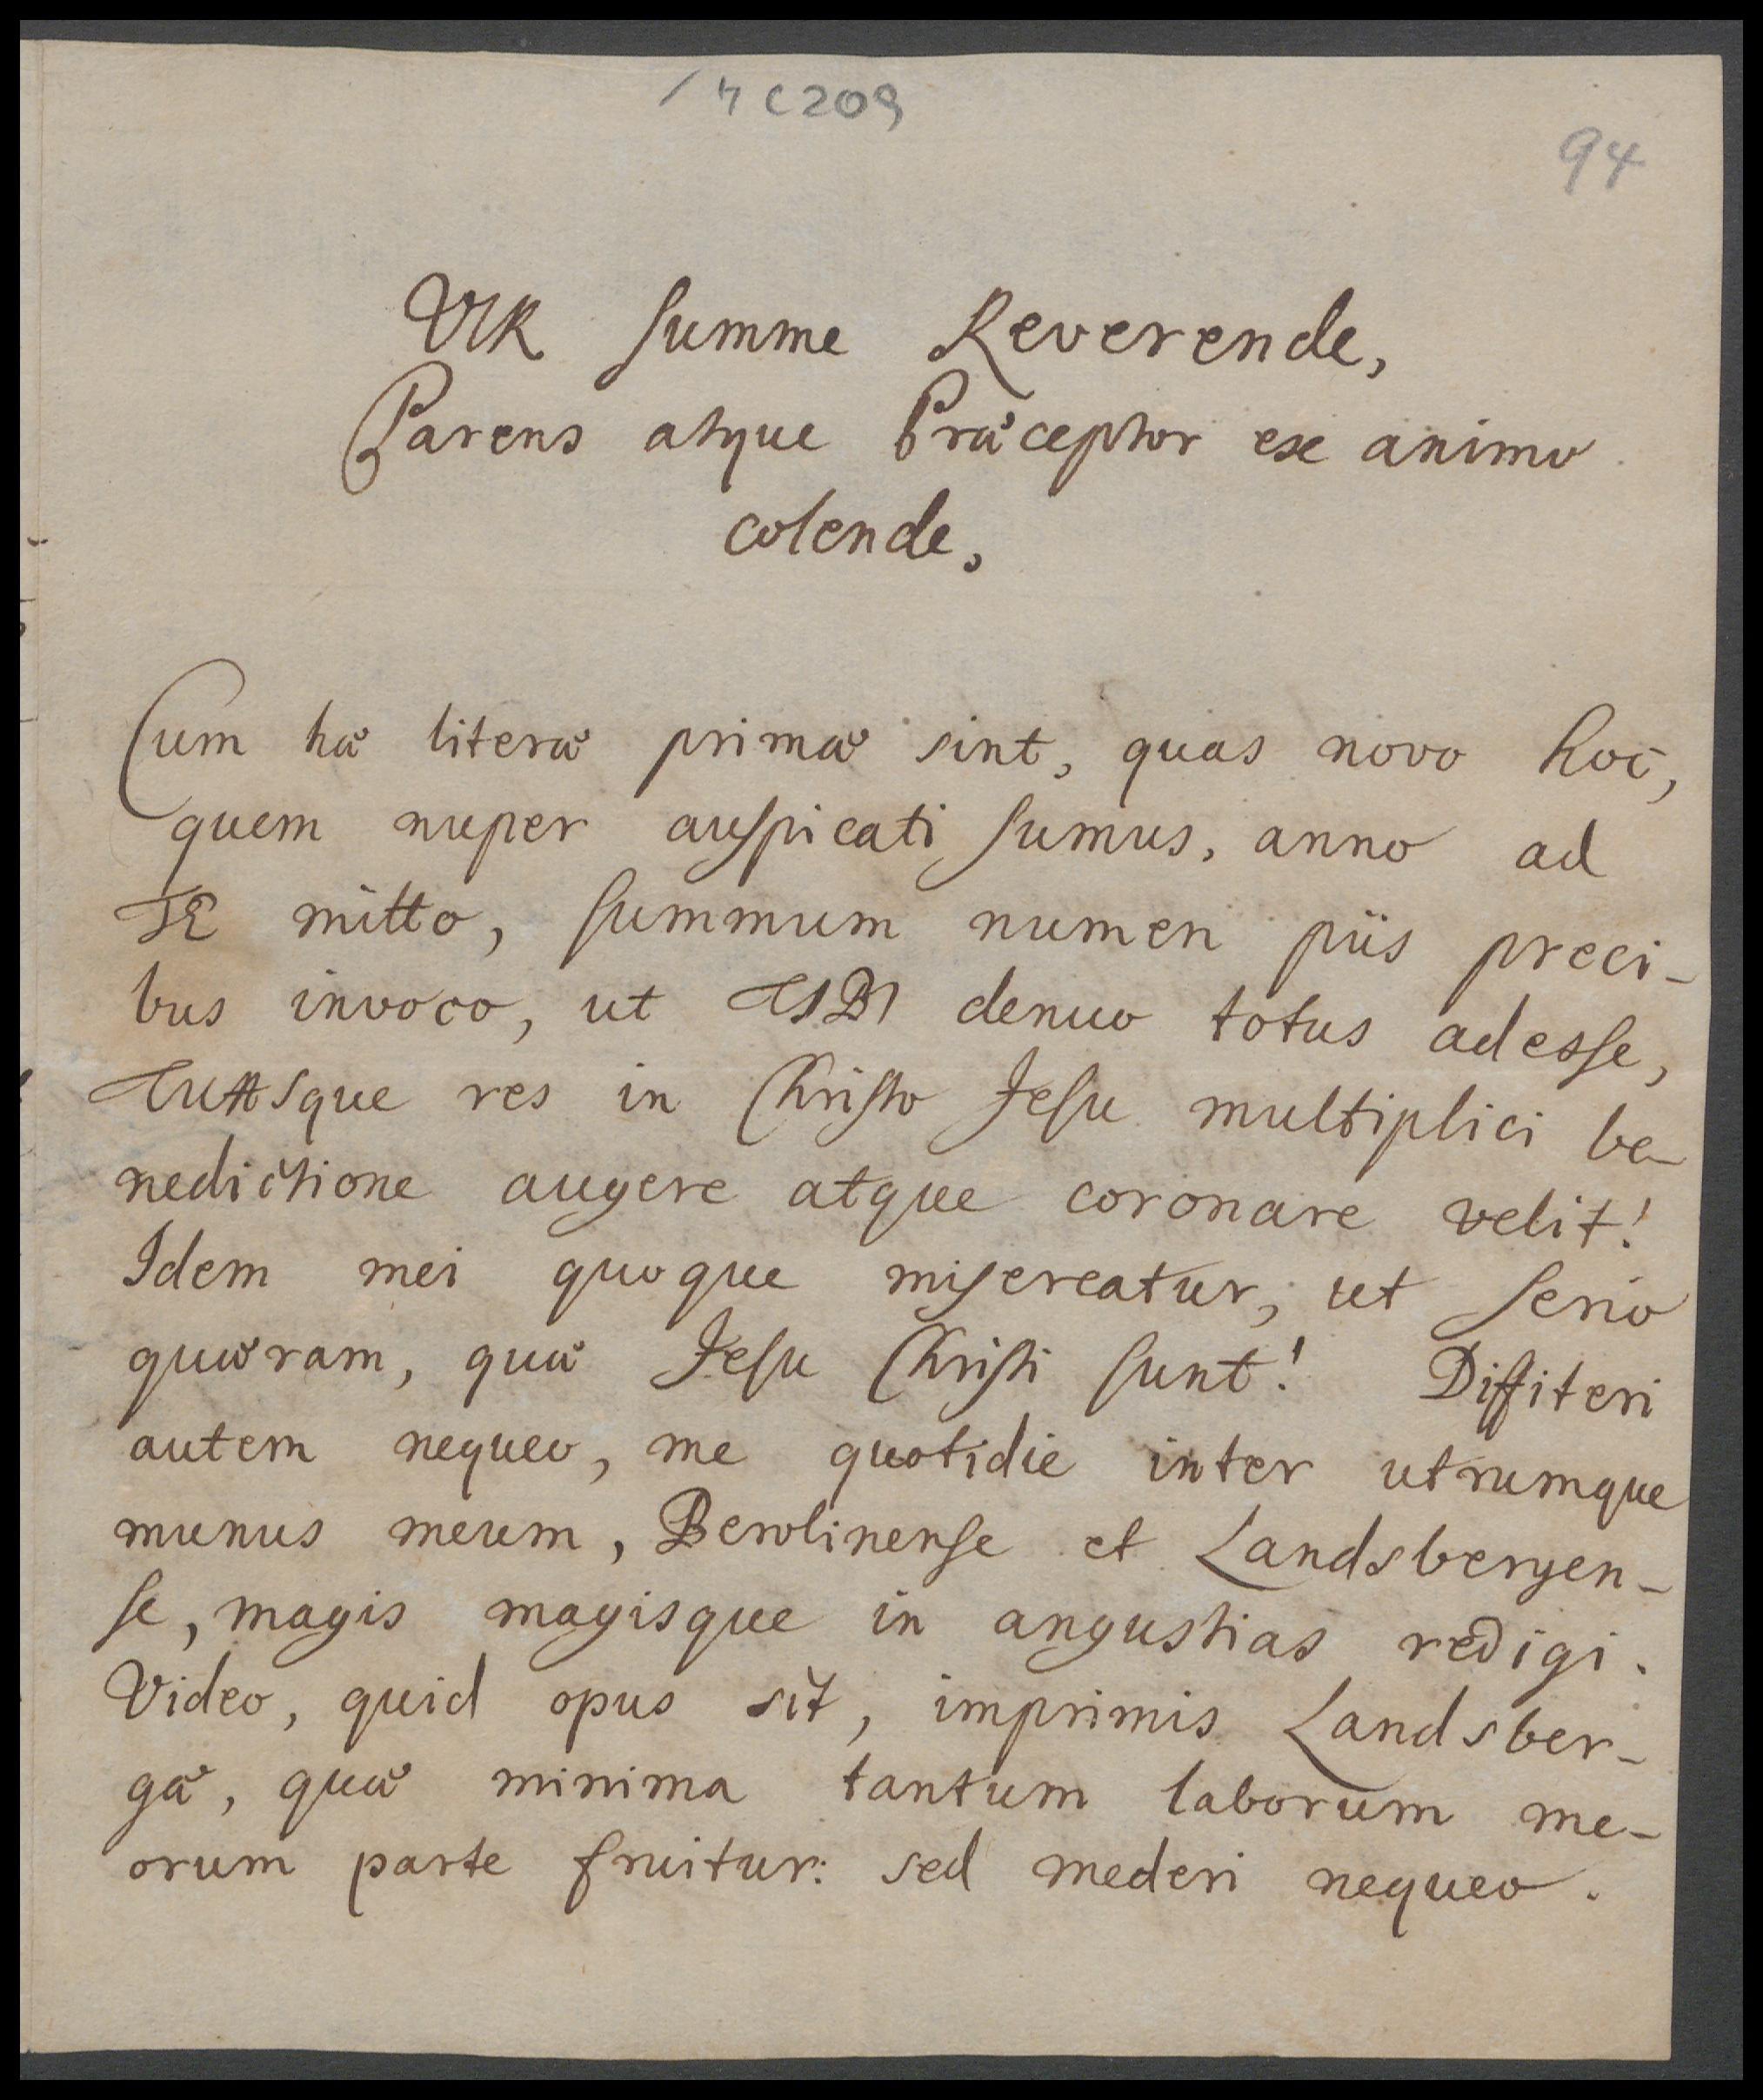 / 4 C 209
94
VIR summe Reverende,
Parens atque Præceptor ex animo
colende,
Cum hæ literæ primæ sint, quas novo hoc,
quem nuper auspicati sumus, anno ad
TE mitto, summum numen piis preci-
bus invoco, ut TIBI denuo totus adesse,
TUASque res in Christo Jesu multiplici be-
nedictione augere atque coronare velit!
Idem mei quoque misereatur, ut serio
quæram, quæ Jesu Christi sunt! Diffiteri
autem nequeo, me quotidie inter utrumque
munus meum, Berolinense et Landsbergen-
se, magis magisque in angustias redigi.
Video, quid opus sit, imprimis Landsber-
gæ, quæ minima tantum laborum me-
orum parte fruitur: sed mederi nequeo.